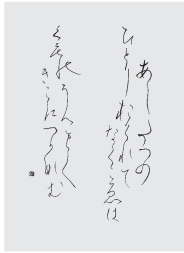 あしたつの
ひとりおくれて
なくこゑは
くものうへまてく
きこえつかなむ